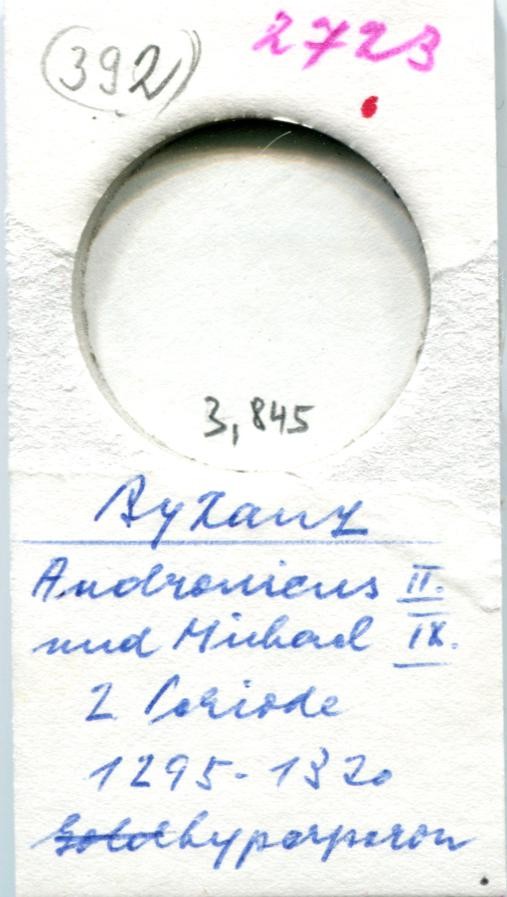 (392)
2723
3,845
Byzanz
Andronicus II.
und Michael IX.
2 Periode
1295-1320
Goldhyperperon